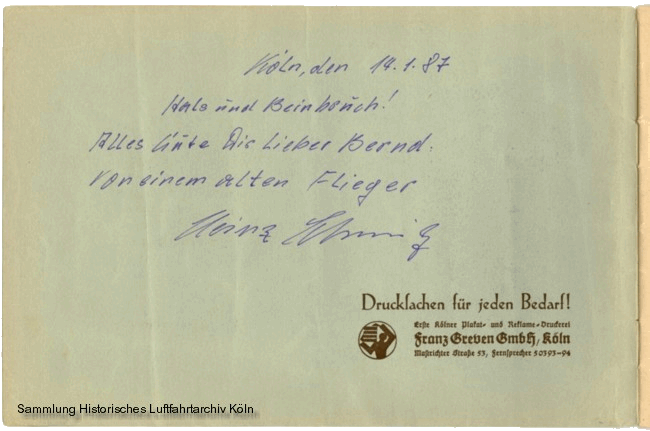 Köln, den 14.1.87
Hals und Beinbruch!
Alles Gute Dir Lieber Bernd.
Von einem alten Flieger
Heinz Schmitz
Drucksachen für jeden Bedarf!
Erste Kölner Plakat- und Reklame-Druckerei
Franz Greven GmbH, Köln
Mastrichter Straße 53, Fernsprecher 50393-94
Sammlung Historisches Luftfahrtarchiv Köln